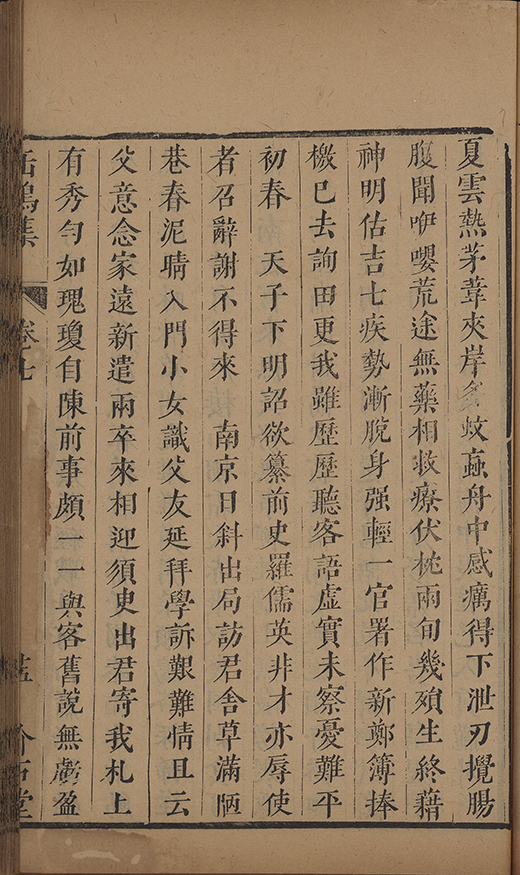 夏雲熱茅葦夾岸多蚊蝱舟中感癘得下泄刃攪腸
腹聞咿嚶荒途無藥相救療伏枕兩旬幾殞生終藉
神明估吉七疾勢漸脫身强輕一官署作新鄭簿捧
檄已去詢田更我雖歷歷聽客語虛實未察憂難平
初春　天子下明詔欲纂前史羅儒英非才亦辱使
者召辭謝不得來　南京日斜出局訪君舍草滿陋
巷春泥晴入門小女識父友延拜學訴艱難情且云
父意念家遠新遣兩卒來相迎須臾出君寄我札上
有秀句如瑰瓊自陳前事頗一一與客舊說無虧盈
缶鳴集
卷七